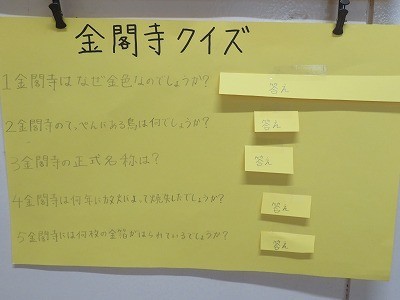 金閣寺クイズ
1金閣寺はなぜ金色なのでしょうか? 答え
2金閣寺のてっぺんにある鳥は何でしょうか? 答え
3金閣寺の正式名称は? 答え
4金閣寺は何年に放火によって焼失したでしょうか? 答え
5金閣寺には何枚の金箔がはられているでしょうか? 答え